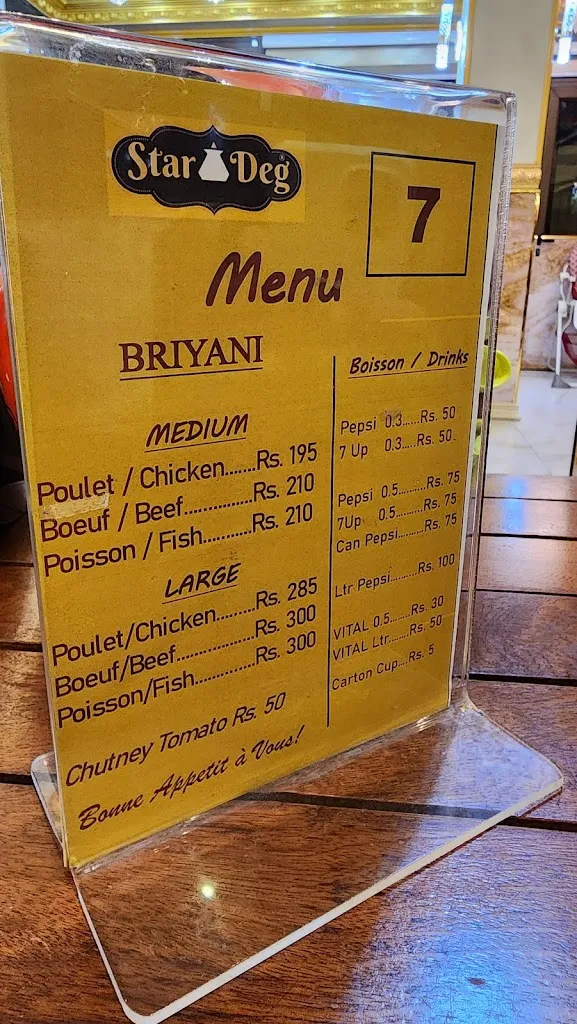 Star Deg
7
Menu
BRIYANI
MEDIUM
Poulet / Chicken.......Rs. 195
Boeuf / Beef...............Rs. 210
Poisson / Fish...........Rs. 210
LARGE
Poulet/Chicken.........Rs. 285
Boeuf/Beef................Rs. 300
Poisson/Fish.............Rs. 300
Chutney Tomato Rs. 50
Bonne Appetit à Vous!
Boisson / Drinks
Pepsi 0.3......Rs. 50
7 Up 0.3....Rs. 50
Pepsi 0.5..........Rs. 75
7Up 0.5........Rs. 75
Can Pepsi........Rs. 75
Ltr Pepsi..........Rs. 100
VITAL 0.5........Rs. 30
VITAL Ltr........Rs. 50
Carton Cup....Rs. 5